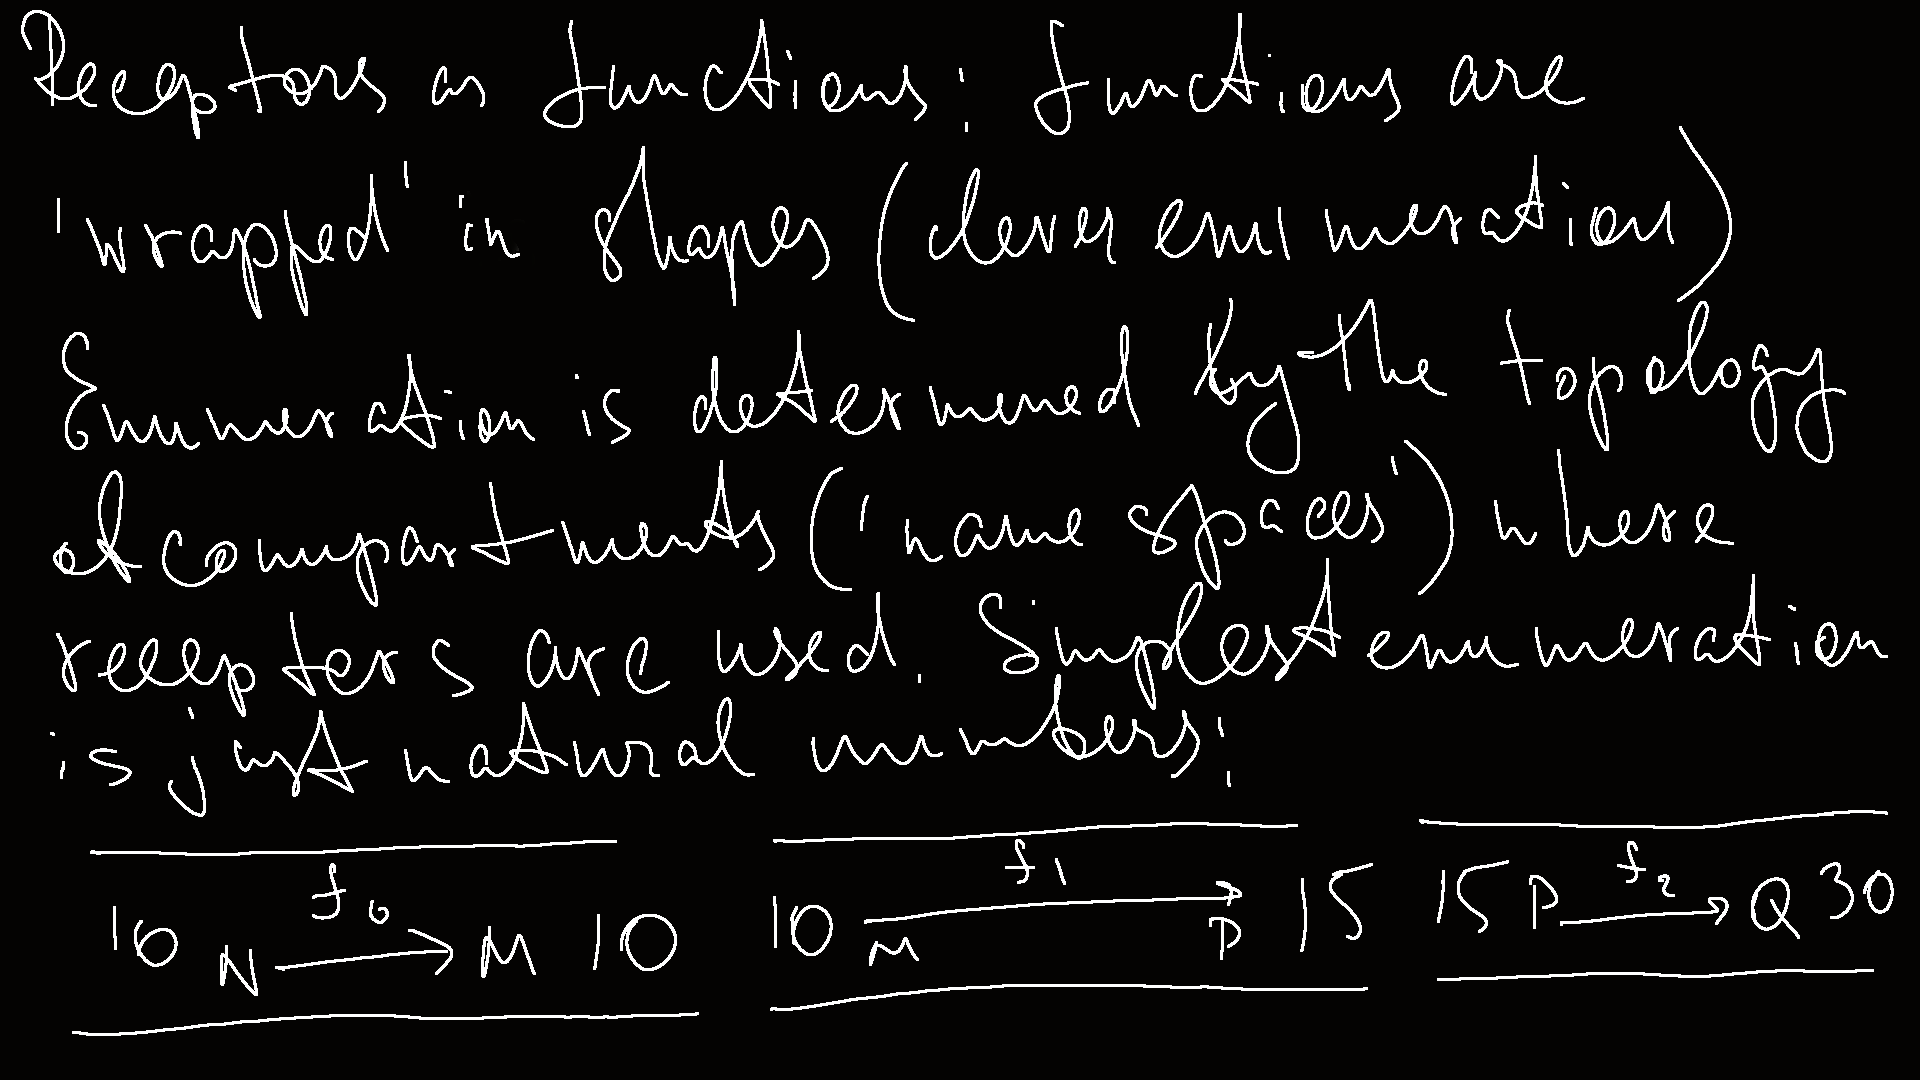 Receptors as functions: functions are
'wrapped' in shapes (clever enumeration)
Enumeration is determined by the topology
of compartments ('name spaces') where
receptors are used. Simplest enumeration
is just natural numbers:
10 N f0 → M 10 10 M f1 → P 15 15 P f2 → Q 30